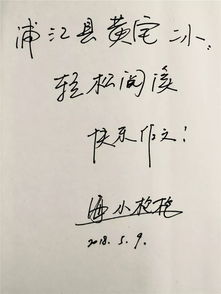 浦江县黄宅二小:
轻松阅读
快乐作文!
海小枪枪
2018.5.9.